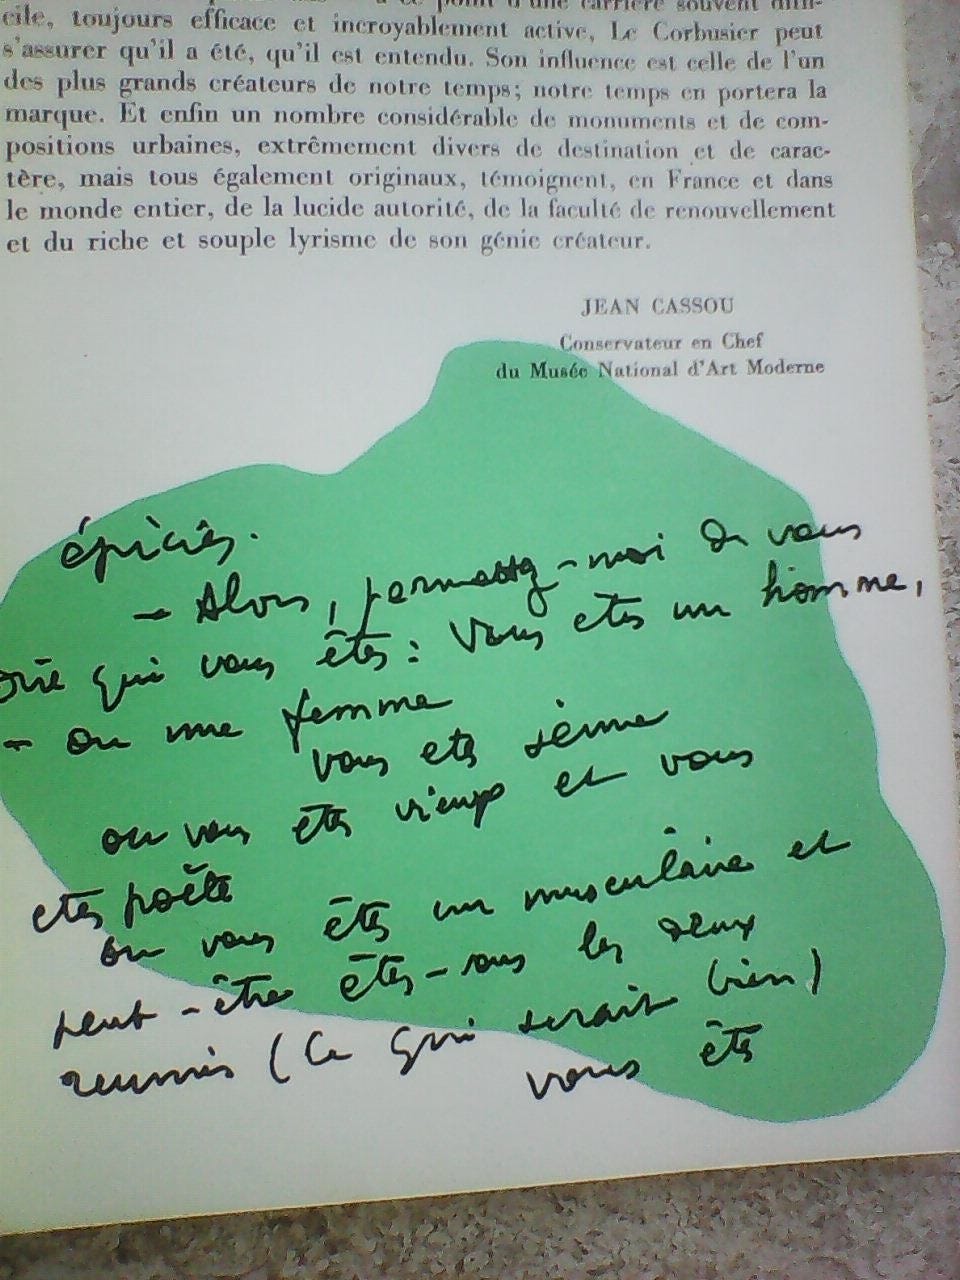 à ce point d'une carrière souvent diffi-
cile, toujours efficace et incroyablement active, Le Corbusier peut
s'assurer qu'il a été, qu'il est entendu. Son influence est celle de l'un
des plus grands créateurs de notre temps; notre temps en portera la
marque. Et enfin un nombre considérable de monuments et de com-
positions urbaines, extrêmement divers de destination et de carac-
tère, mais tous également originaux, témoignent, en France et dans
le monde entier, de la lucide autorité, de la faculté de renouvellement
et du riche et souple lyrisme de son génie créateur.
JEAN CASSOU
Conservateur en Chef
du Musée National d'Art Moderne
épiciers.
- Alors, permettez-moi de vous
dire qui vous êtes: Vous etes un homme,
- ou une femme
vous etes jeune
ou vous êtes vieux et vous
etes poête
ou vous êtes un musculaire et
peut-être êtes-vous les deux
reunis (ce qui serait bien)
vous êtes